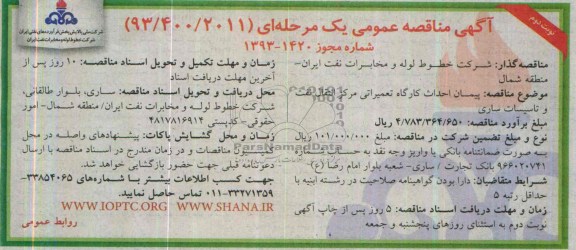 نوبت دوم
آگهی مناقصه عمومی یک مرحله‌ای (۹۳/۴۰۰/۲۰۱۱)
شماره مجوز ۱۴۲۰-۱۳۹۳
شرکت ملی پالایش و پخش فرآورده‌های نفتی ایران
شرکت خطوط لوله و مخابرات نفت ایران
مناقصه‌گذار: شرکت خطوط لوله و مخابرات نفت ایران-
منطقه شمال
موضوع مناقصه: پیمان احداث کارگاه تعمیراتی مرکز انتقال نفت
و تاسیسات ساری
مبلغ برآورد مناقصه: ۴/۷۸۳/۳۶۴/۶۵۰ ریال
نوع و مبلغ تضمین شرکت در مناقصه: ۱۰۱/۰۰۰/۰۰۰ ریال
به صورت ضمانتنامه بانکی یا واریز وجه نقد به حساب
۹۶۶۰۲۰۷۴۱ بانک تجارت - ساری- شعبه بلوار امام رضا (ع)
شرایط متقاضیان: دارا بودن گواهینامه صلاحیت در رشته ابنیه با
حداقل رتبه ۵
زمان و مهلت دریافت اسناد مناقصه: ۵ روز پس از چاپ آگهی
نوبت دوم به استثنای روزهای پنجشنبه و جمعه
زمان و مهلت تکمیل و تحویل اسناد مناقصه: ۱۰ روز پس از
آخرین مهلت دریافت اسناد
محل دریافت و تحویل اسناد مناقصه: ساری، بلوار طالقانی،
شرکت خطوط لوله و مخابرات نفت ایران/ منطقه شمال- امور
حقوقی- کدپستی ۴۸۱۷۸۱۶۹۱۴
زمان و محل گشایش پاکات: پیشنهادهای واصله در محل
کمیسیون مناقصات و در زمان مندرج در اسناد مناقصه با ارسال
دعوتنامه قبلی جهت حضور بازگشایی خواهد شد.
جهت کسب اطلاعات بیشتر با شماره‌های ۳۳۸۵۴۰۶۵-
۰۱۱-۳۳۲۷۱۳۵۹ تماس حاصل نمایید.
WWW.IOPTC.ORG WWW.SHANA.IR
روابط عمومی
ParsNamadData